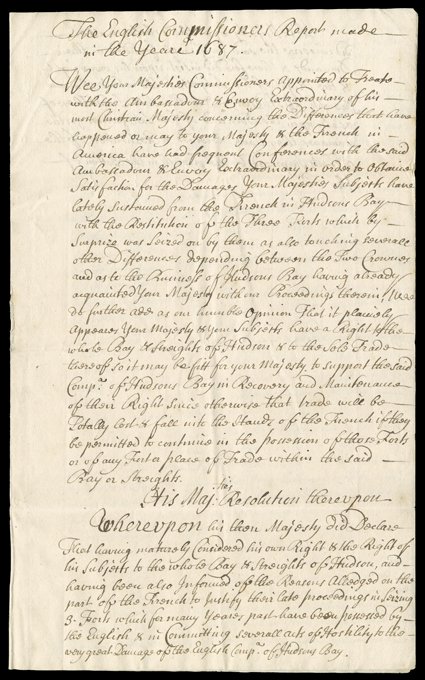 The English Commissioners Report made
in the Yeare 1687
Wee Your Majesties Commissioners appointed to Treate
with the Ambassadour & Envoy Extraordinary of his
most Christian Majesty concerning the Differences that have
happened or may to your Majesty & the French in
America have had frequent Conferences with the said
Ambassadour & Envoy Extraordinary in order to Obtaine
Satisfaction for the Damages Your Majesties Subjects have
lately Sustained from the French in Hudsons Bay
with the Restitution of the Three Forts which by
Surprize was Seized on by them as also touching severall
other Differences depending between the Two Crownes
and as to the Business of Hudsons Bay having already
acquainted Your Majesty with our Proceedings therein Wee
do further add as our humble Opinion That it plainely
appeares Your Majesty & your Subjects have a Right to the
whole Bay & Streights of Hudson & to the Sole Trade
thereof so it may be fitt for your Majesty to support the said
Comp.ª of Hudsons Bay in Recovery and Maintenance
of their Right Since otherwise that trade will be
Totally lost & fall into the Hands of the French if they
be permitted to continue in the possession of those Forts
or of any Fort or place of Trade within the said
Bay or Streights.
His Maj.ties Resolution thereupon
Whereupon his then Majesty did Declare
That having maturely Considered his own Right & the Right of
his Subjects to the whole Bay & Streights of Hudson, and
having been also Informed of the Reasons Alledged on the
part of the French to Justify their late proceedings in Seizing
3. Forts which for many Yeares past have been possessed by
the English & in Committing severall acts of Hostility to the
very great Damage of the English Comp.ª of Hudsons Bay.